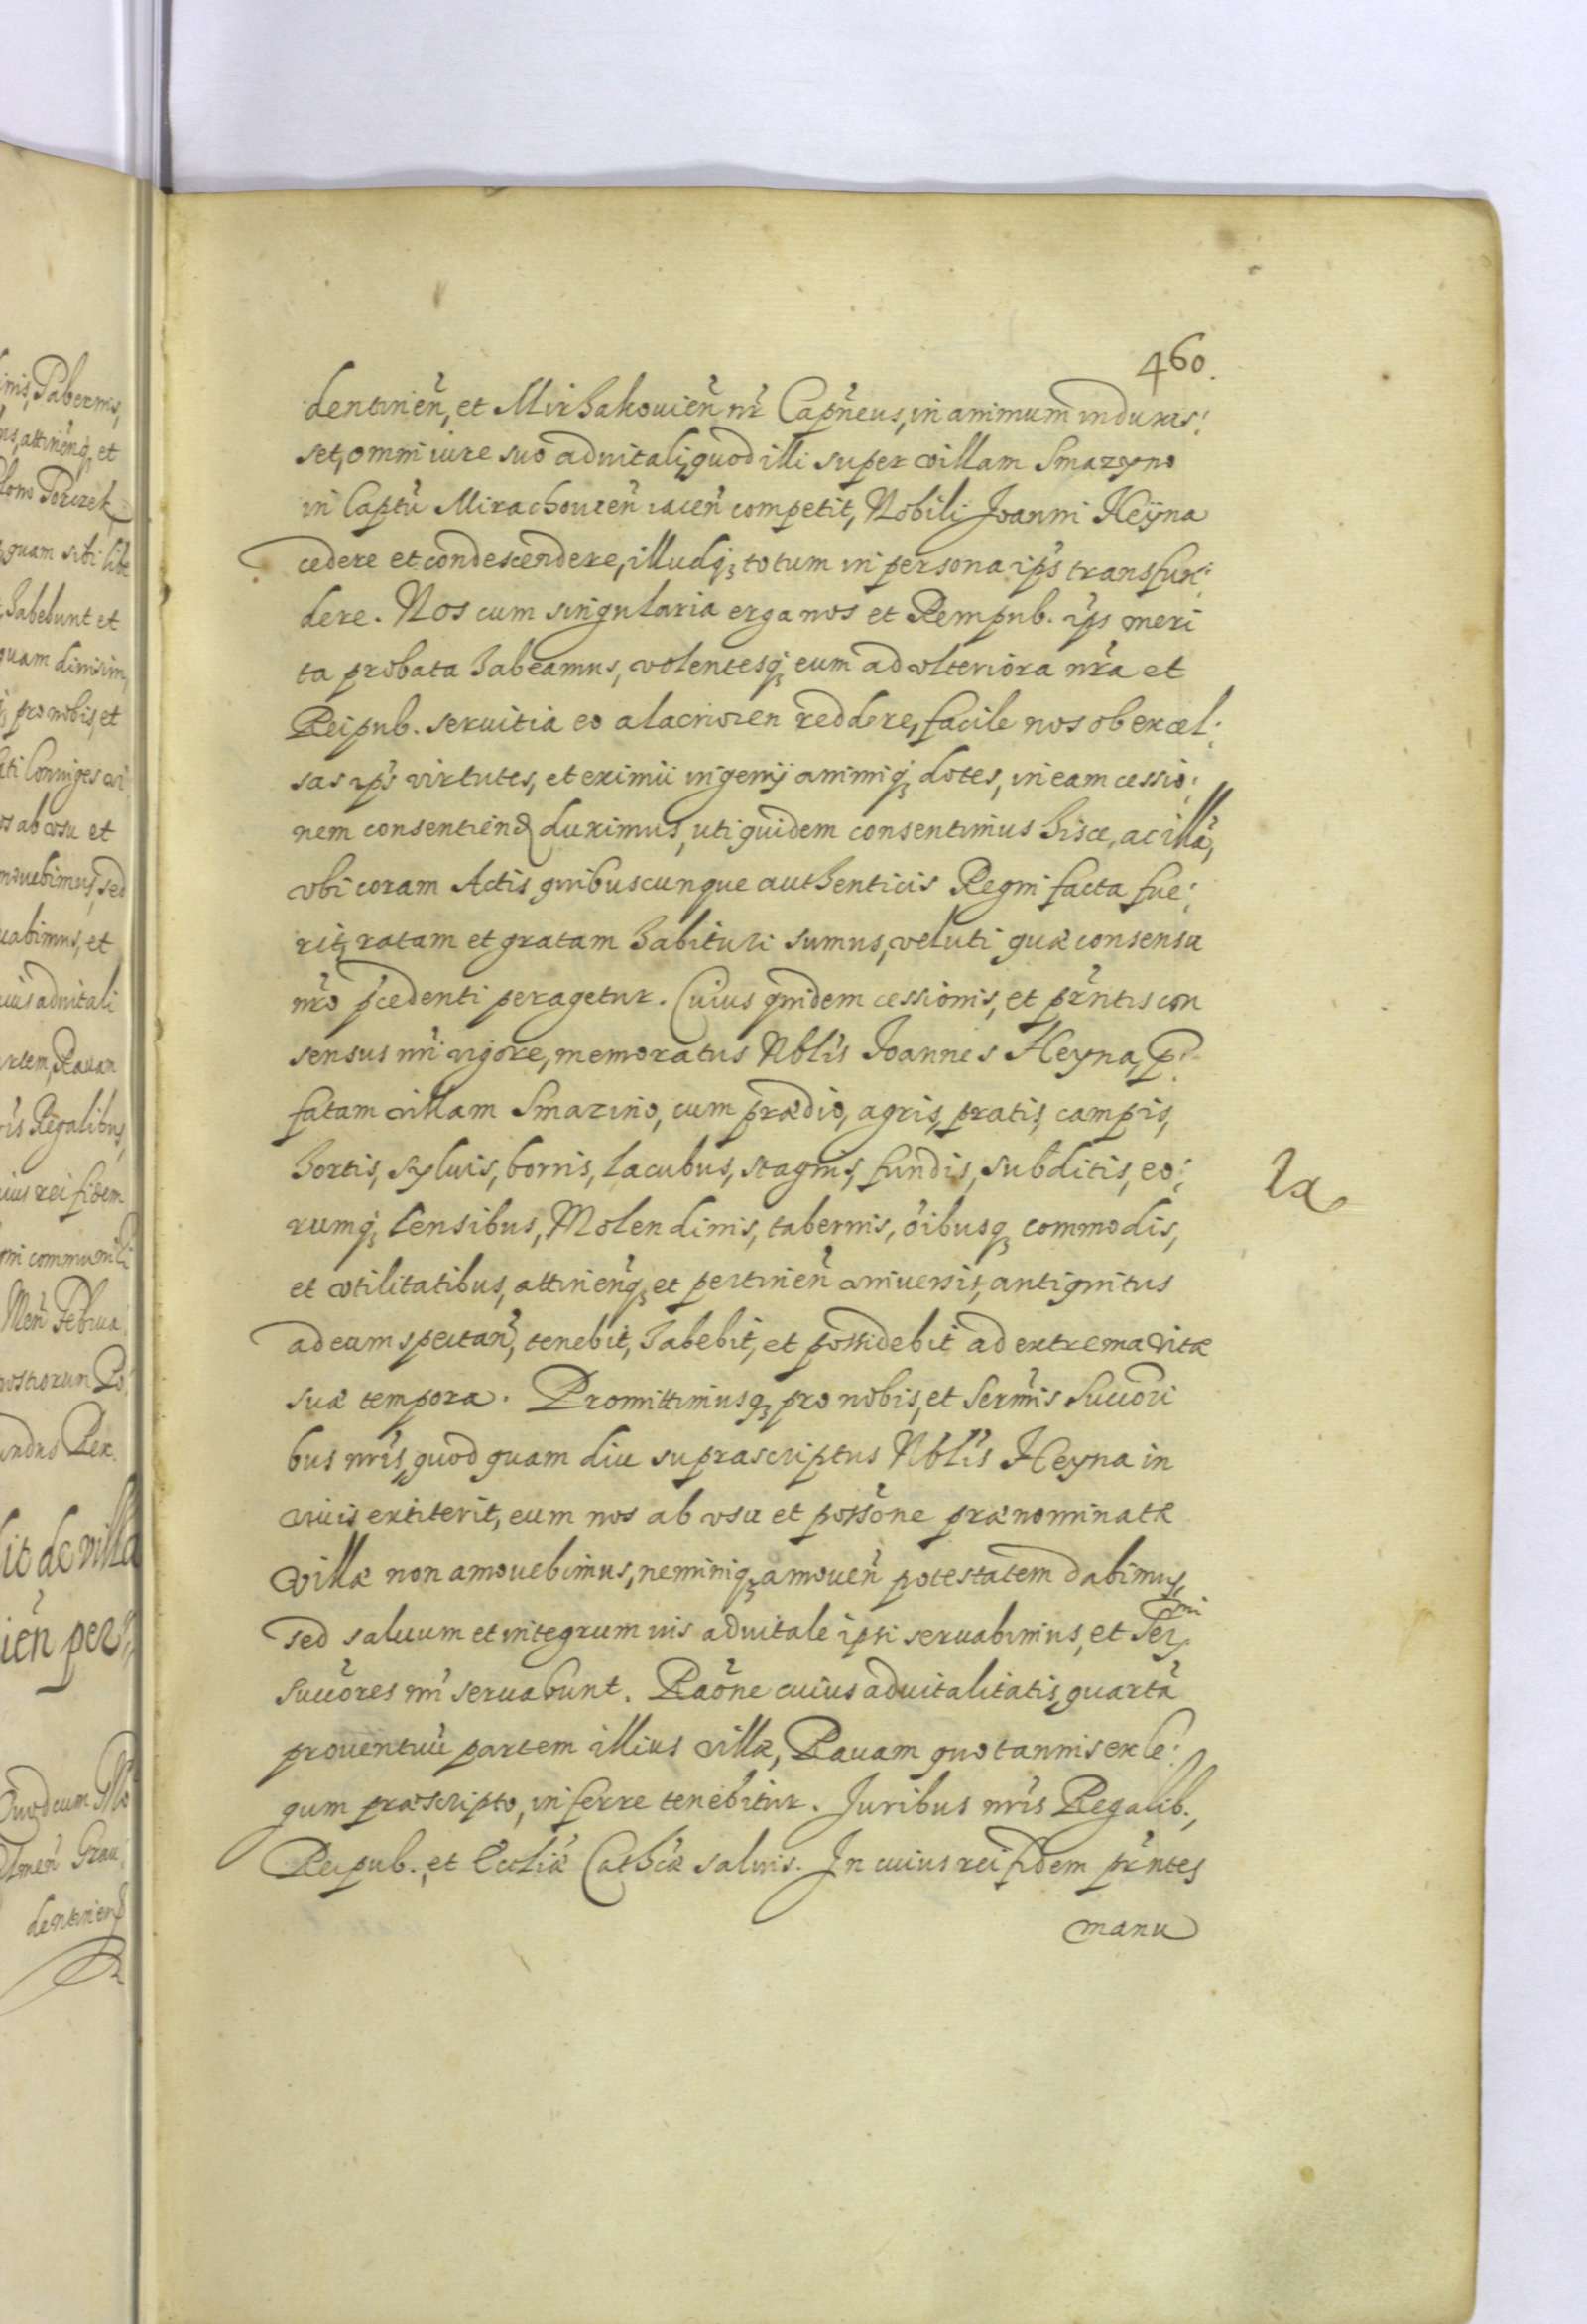 460.
dentinen̄, et Mirhakouien̄ nr̄ Capn̄eus, in animum induxis:
set, omni iure suo aduitali, quod illi super villam Smazyno
in Captū Mirachouien̄ iacen̄ competit, Nobili Joanni Heyna
cedere et condescendere, illudq; totum in persona ips̄ transfun:
dere. Nos cum singularia erga nos et Rempub. ips̄ meri
ta probata habeamus, volentesq; eum ad vlteriora nr̄a et
Reipub. seruitia eo alacriorem reddere, facile nos ob excel:
sas ips̄ virtutes, et eximii ingenij animiq; dotes, in eam cessio:
nem consentiend duximus, uti quidem consentimus hisce, ac illā,
vbi coram Actis quibuscunque authenticis Regni facta fue:
rit, ratam et gratam habituri sumus, veluti quæ consensu
nr̄o p̄cedenti peragetur. Cuius quidem cessionis, et pr̄ntis con
sensus nr̄i vigore, memoratus Nbl̄is Joannes Heyna, p̄:
fatam villam Smazino, cum prædio, agris, pratis, campis,
hortis, syluis, borris, lacubus, stagnis, fundis, subditis, eo:
rumq; Censibus, Molendinis, tabernis, ōibusq; commodis,
et vtilitatibus, attinen̄q; et pertinen̄ vniuersis, antiquitus
ad eam spectan̄, tenebit, habebit, et possidebit ad extrema vitæ
suæ tempora. Promittimusq; pro nobis, et Serm̄is Succōri
bus nr̄is, quod quam diu suprascriptus Nbl̄is Heyna in
viuis extiterit, eum nos ab vsu et possōne prænominatæ
villæ non amouebimus, neminiq; amouen̄ potestatem dabimus,
sed saluum et integrum ius aduitale ipsi seruabimus, et Ser̄mi
Succōres nr̄i seruabunt. Raōne cuius aduitalitatis, quartā
prouentuū partem illius villæ, Rauam quotannis ex le:
gum præscripto, inferre tenebitur. Juribus nr̄is Regalib.,
Reipub., et Eccliæ Cathcæ saluis. In cuius rei fidem pr̄ntes
manu